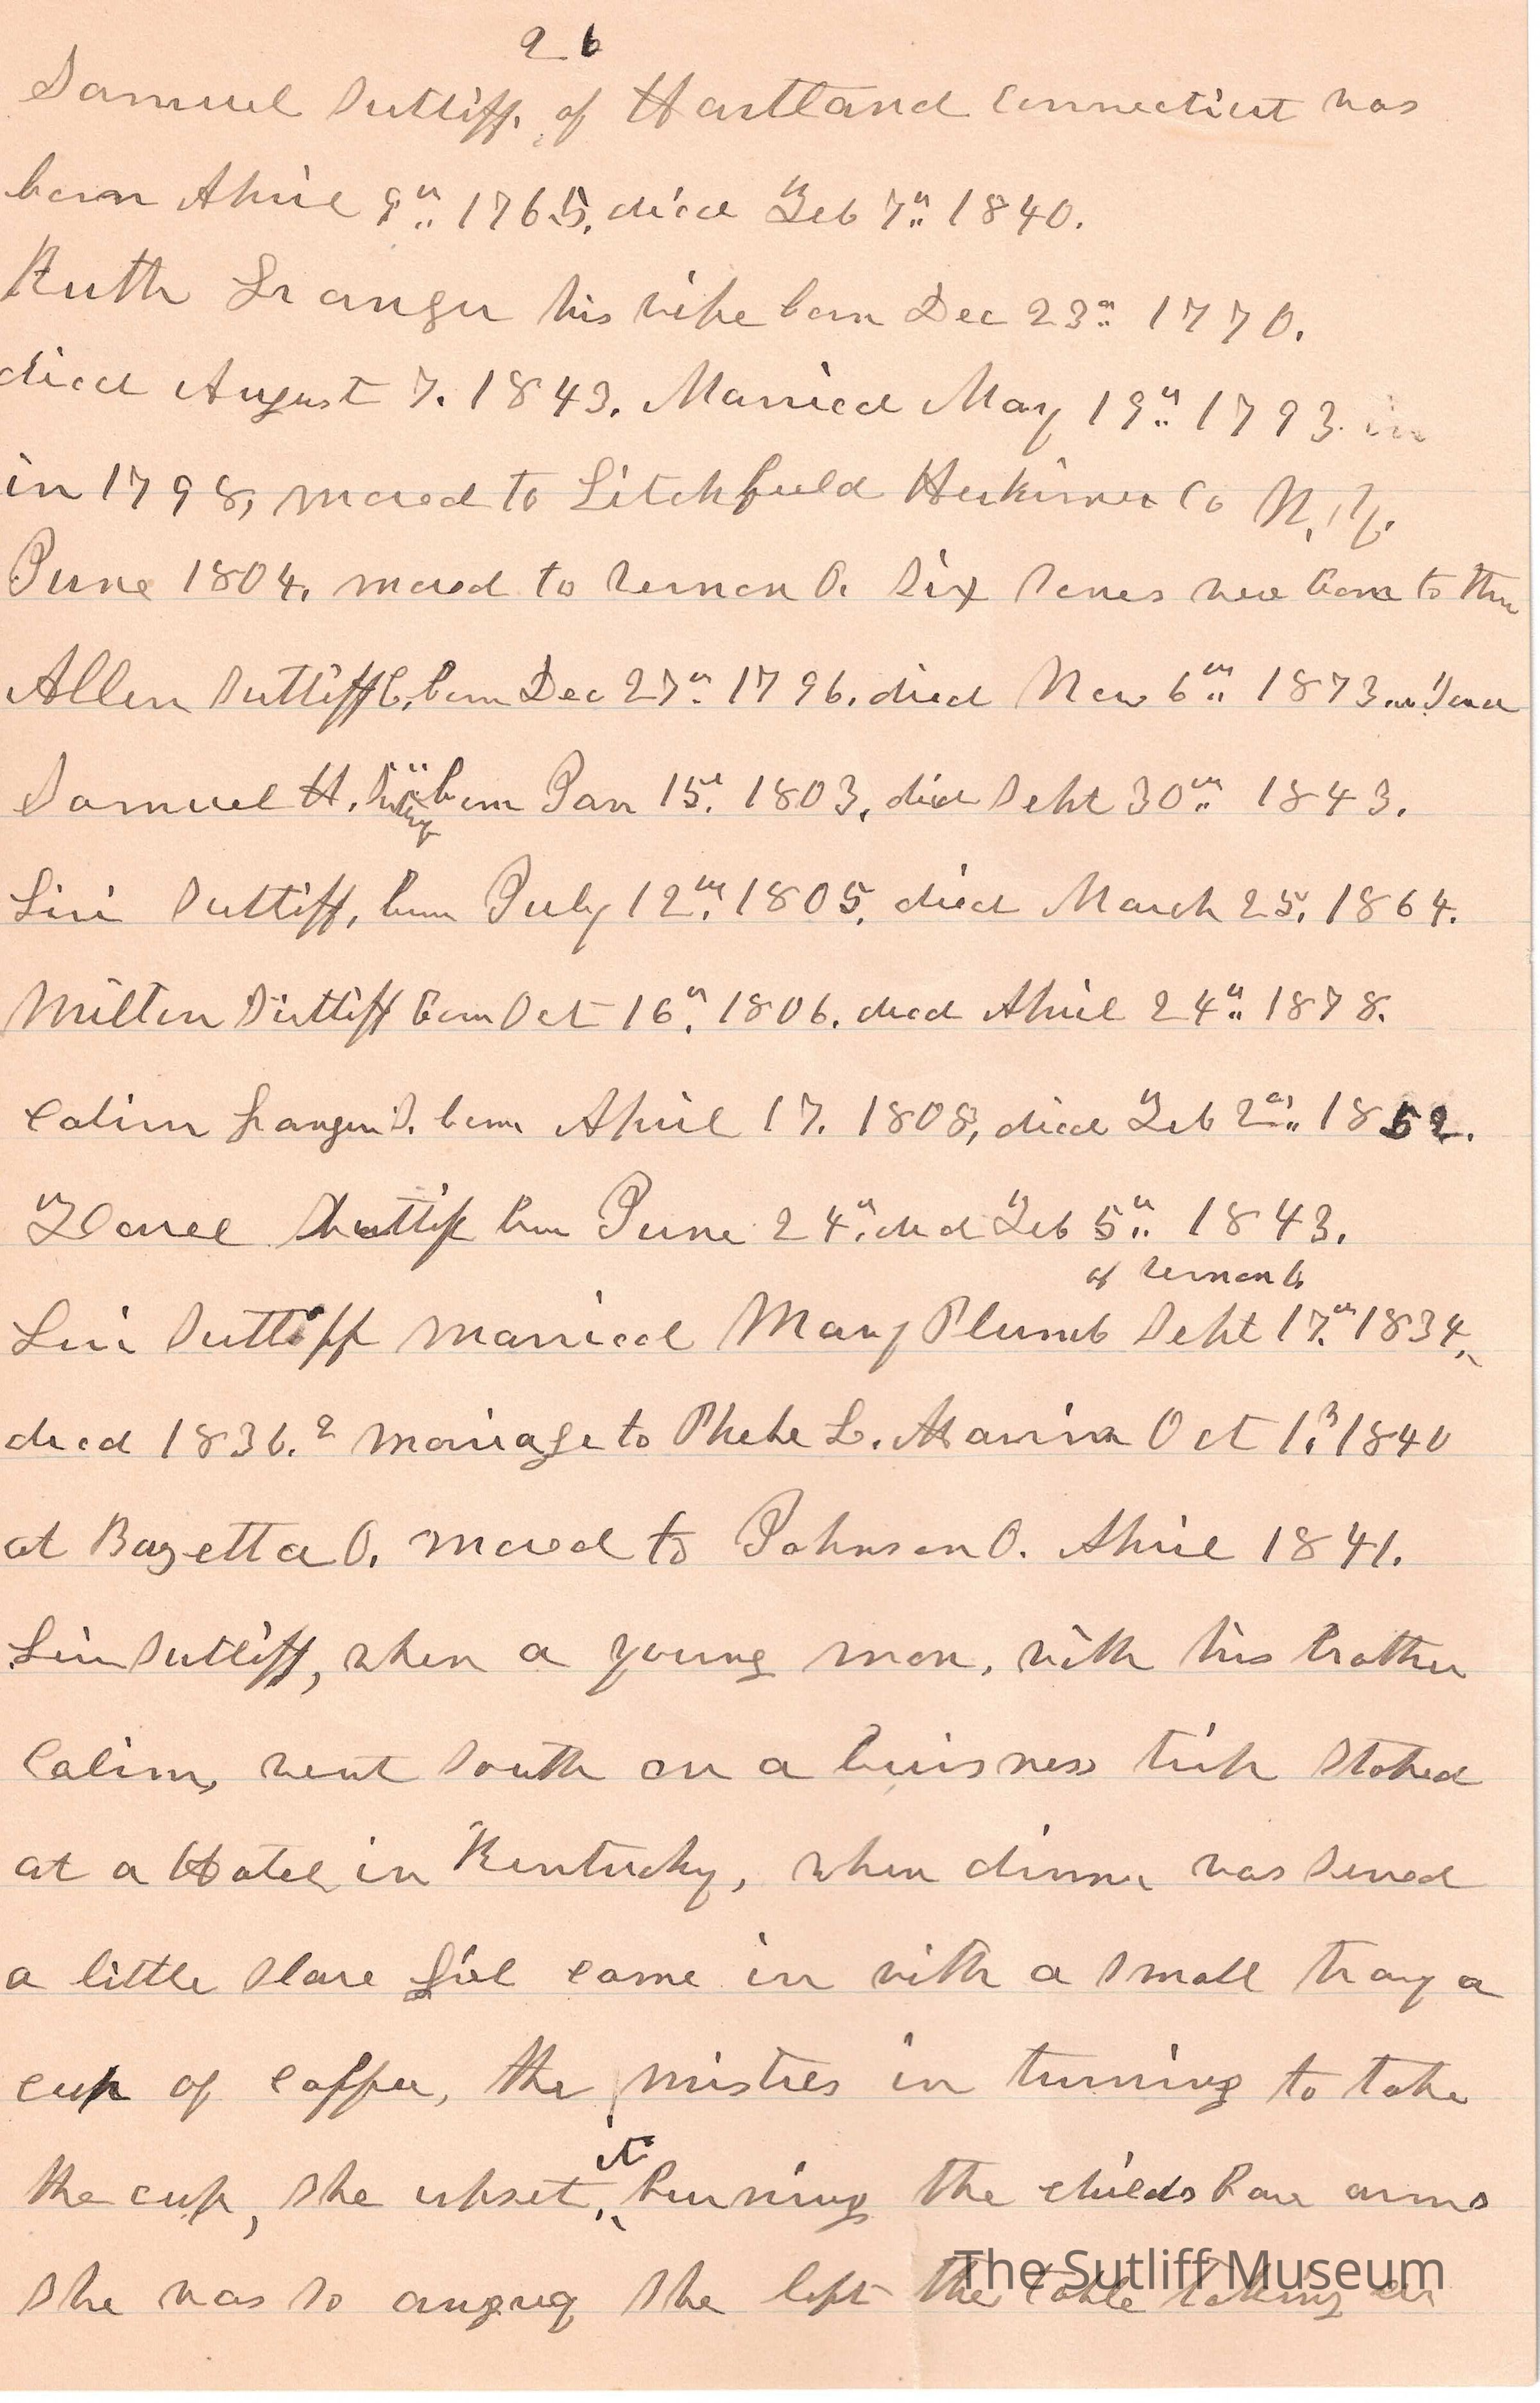 26
Samuel Sutliff, of Hartland Connecticut was
born April 9th 1765, died Feb 7th 1840.
Ruth Granger his wife born Dec 23d 1770.
died August 7. 1843. Married May 19th 1793. in
in 1798, moved to Litchfield Herkimer Co N.Y.
June 1804. moved to Vernon O. Six Sones were born to them
Allen Sutliff born Dec 27th 1796. died Nov 6th 1873.
Samuel H. Sutliff born Jan 15th 1803, died Sept 30th 1843.
Levi Sutliff, born July 12th 1805, died March 25, 1864.
Milton Sutliff born Oct 16th 1806. died April 24th 1878.
Calvin Granger S. born April 17. 1808, died Feb 2d 1852.
Flavel Sutliff born June 24th died Feb 5th 1843.
of Vernon O.
Levi Sutliff married Mary Plumb Sept 17th 1834,
died 1836. 2 marriage to Phebe L. Marvin Oct 1. 1840
at Bazetta O. moved to Johnson O. April 1841.
Levi Sutliff, when a young man, with his brother
Calvin, went South on a buisness trip stoped
at a Hotel in Kentucky, when dinner was served
a little slave girl came in with a small tray a
cup of coffee, the mistres in turning to take
the cup, she upset, it burning the childs bare arms
She was so angrey she left the table taking
The Sutliff Museum